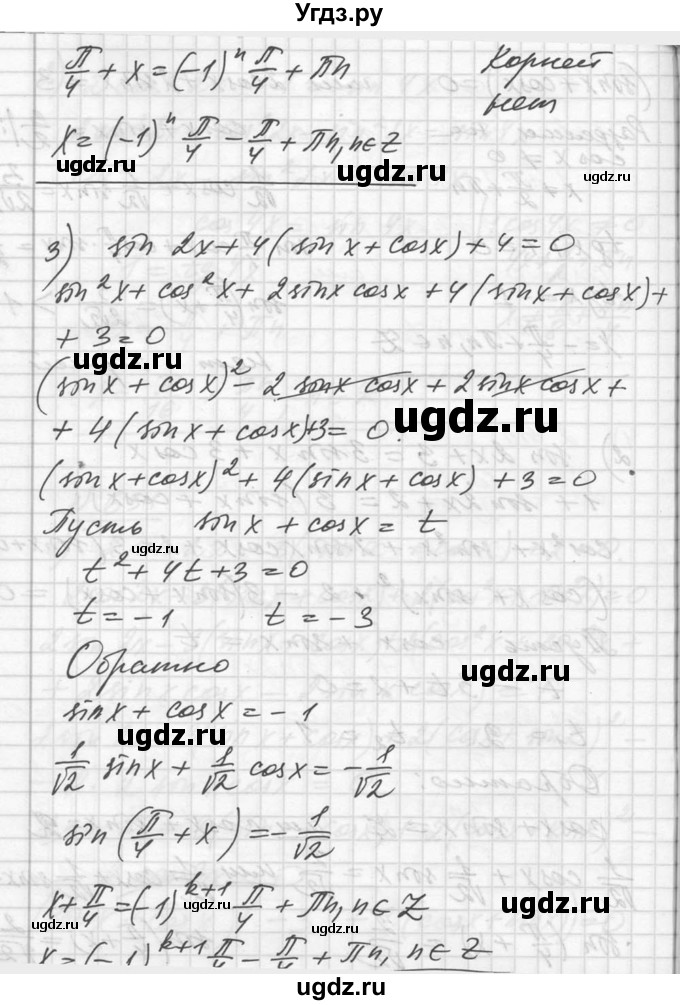 Угдз.ру
π/4 + x = (-1)^n π/4 + πn
Корней
нет
x = (-1)^n π/4 - π/4 + πn, n ∈ Z
ugdz.ru
ugdz.ru
ugdz.ru
3) sin 2x + 4(sin x + cos x) + 4 = 0
sin²x + cos²x + 2 sin x cos x + 4(sin x + cos x) +
+ 3 = 0
ugdz.ru
(sin x + cos x)² - 2 sin x cos x + 2 sin x cos x +
+ 4(sin x + cos x) + 3 = 0
ugdz.ru
(sin x + cos x)² + 4(sin x + cos x) + 3 = 0
Пусть sin x + cos x = t
ugdz.ru
t² + 4t + 3 = 0
t = -1 t = -3
ugdz.ru
Обратно
ugdz.ru
sin x + cos x = -1
ugdz.ru
1/√2 sin x + 1/√2 cos x = -1/√2
sin(π/4 + x) = -1/√2
ugdz.ru
x + π/4 = (-1)^{k+1} π/4 + πn, n ∈ Z
ugdz.ru
ugdz.ru
ugdz.ru
x = (-1)^{k+1} π/4 - π/4 + πn, n ∈ Z
ugdz.ru